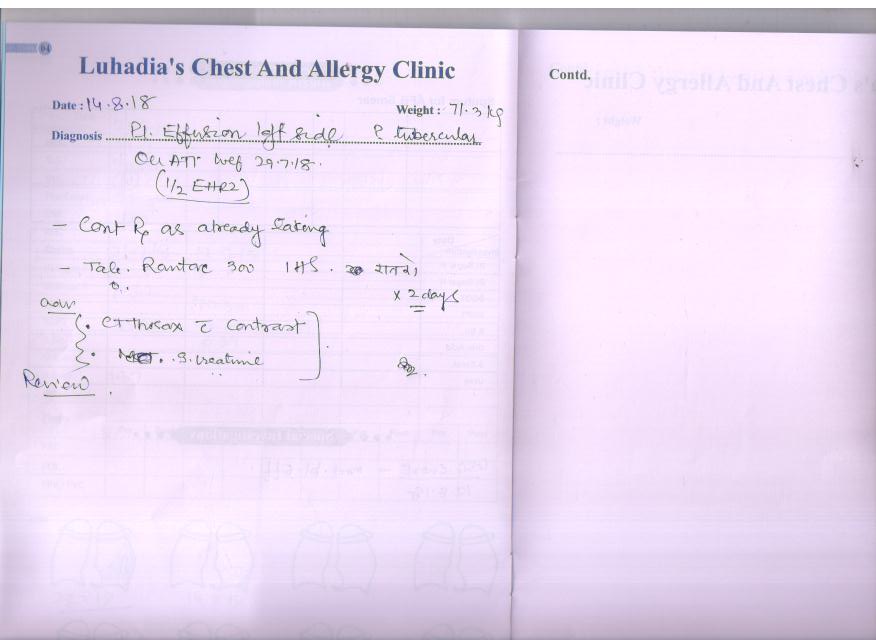 04
Luhadia's Chest And Allergy Clinic
Date : 14.8.18
Weight : 71.3 kg
Diagnosis Pl. Effusion left side ? tubercular
On ATT wef 29.7.18.
(1/2 EHRZ)
- Cont Rx as already taking
- Tab. Rantac 300 1HS. रात को
x 2 days
adv
• CT thorax c̄ contrast
• S. creatinine
Review
Contd.